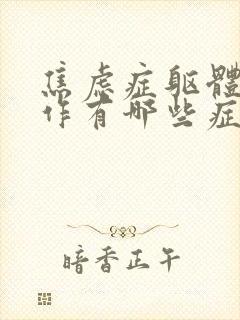 焦虑症躯體
作有哪些症
暗香正午